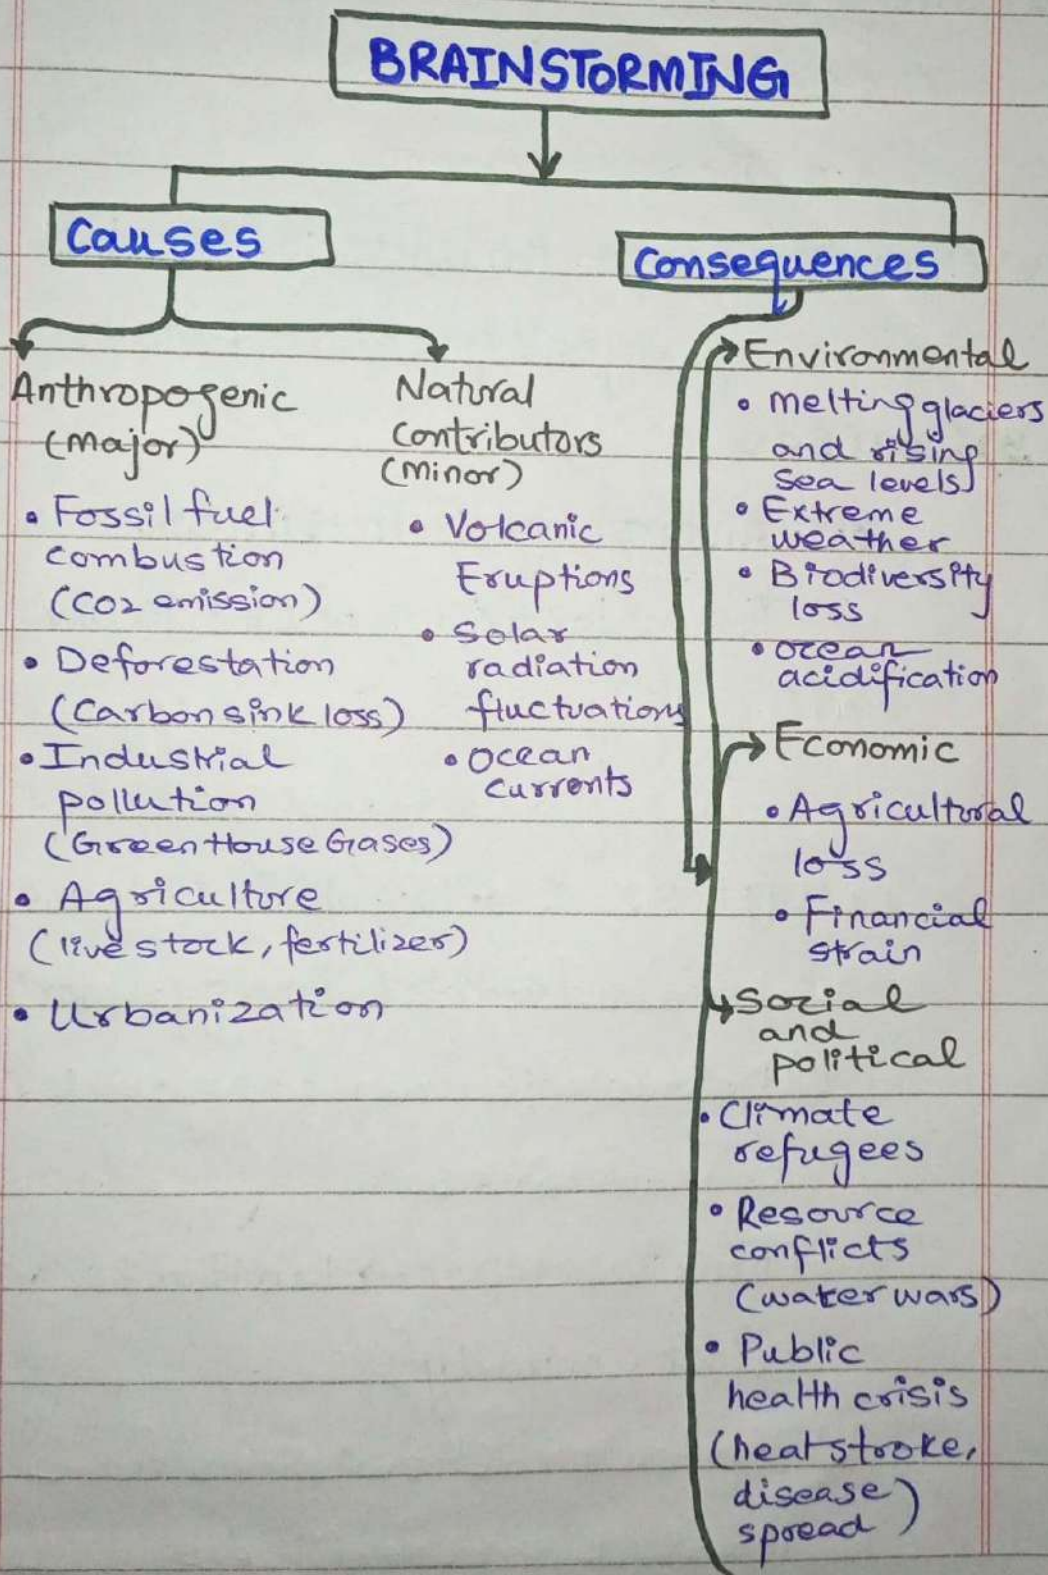 BRAINSTORMING
Causes
Consequences
Anthropogenic
(Major)
• Fossil fuel
combustion
(CO2 emission)
• Deforestation
(Carbon sink loss)
• Industrial
pollution
(Green House Gases)
• Agriculture
(live stock, fertilizer)
• Urbanization
Natural
Contributors
(Minor)
• Volcanic
Eruptions
• Solar
radiation
fluctuations
• Ocean
Currents
Environmental
• melting glaciers
and rising
sea levels
• Extreme
weather
• Biodiversity
loss
• ocean
acidification
Economic
• Agricultural
loss
• Financial
strain
Social
and
political
• Climate
refugees
• Resource
conflicts
(water wars)
• Public
health crisis
(heat stroke,
disease
spread)